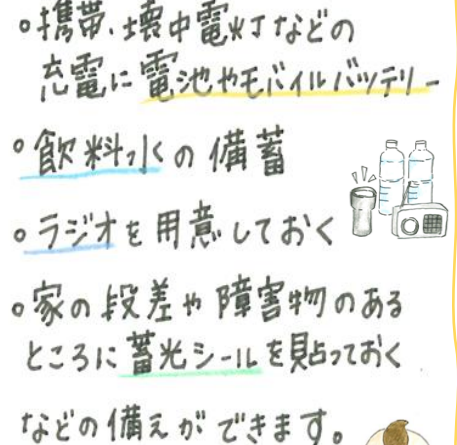 ◦携帯、壊中電灯などの
充電に電池やモバイルバッテリー
◦飲料水の備蓄
◦ラジオを用意しておく
◦家の段差や障害物のある
ところに蓄光シールを貼っておく
などの備えができます。